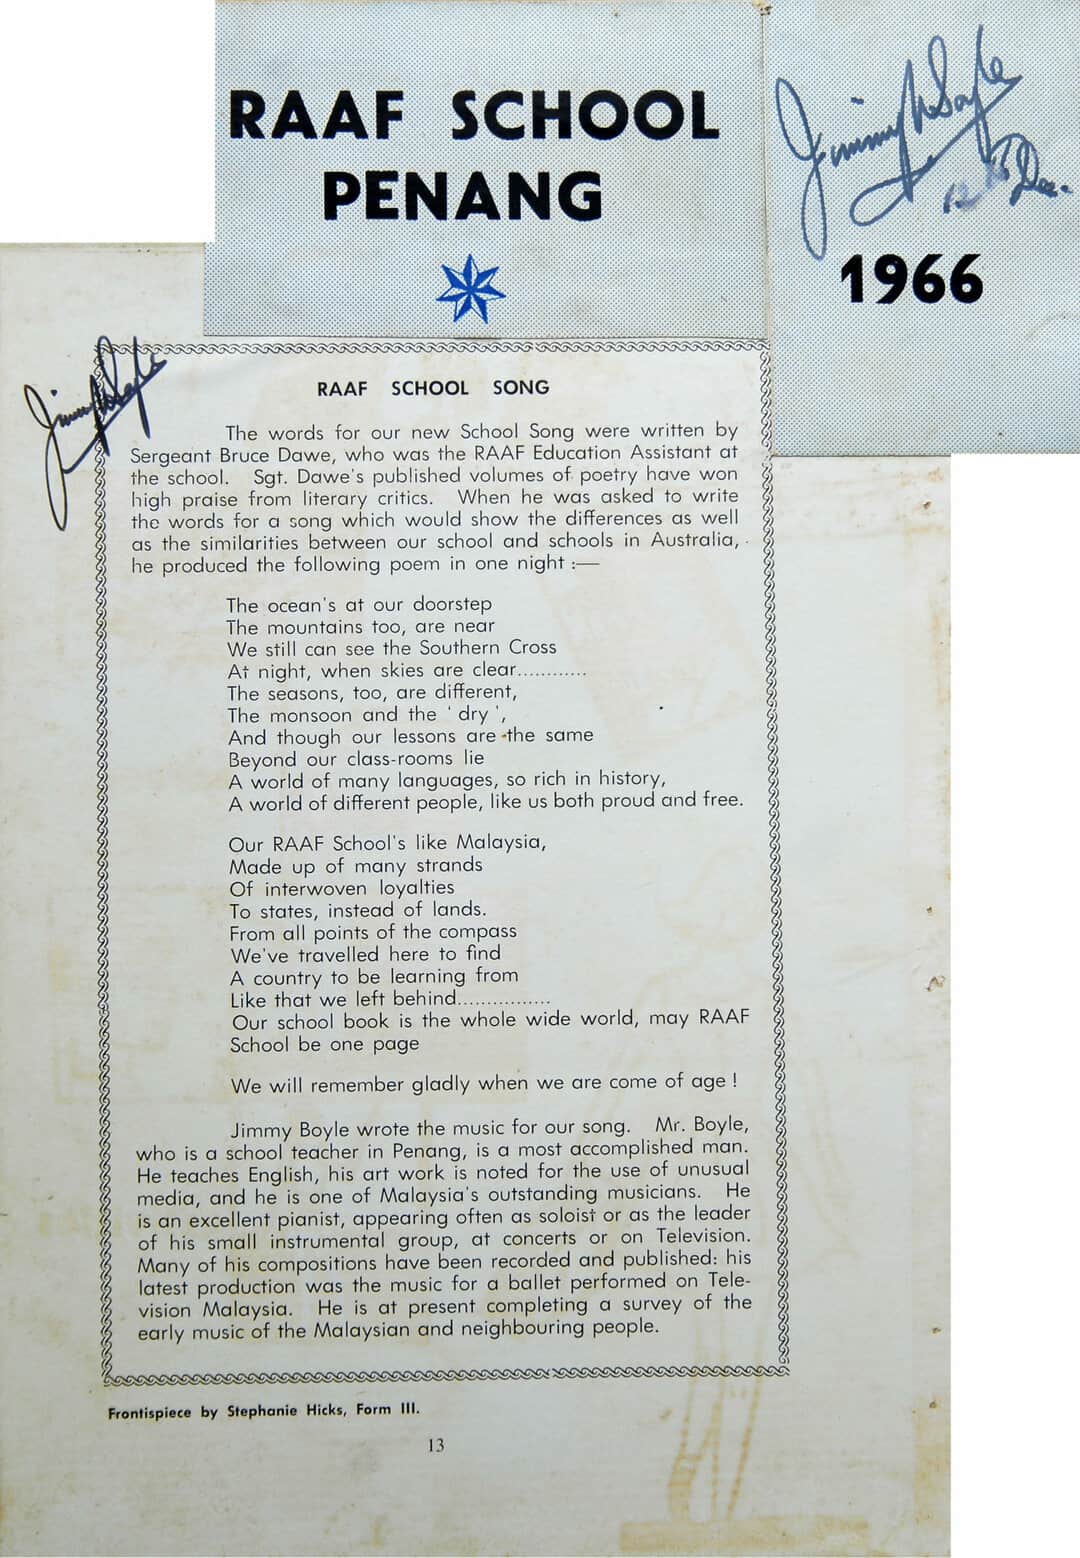 RAAF SCHOOL
PENANG
Jimmy Boyle
Dec.
1966
Jimmy Boyle
RAAF SCHOOL SONG
The words for our new School Song were written by
Sergeant Bruce Dawe, who was the RAAF Education Assistant at
the school. Sgt. Dawe's published volumes of poetry have won
high praise from literary critics. When he was asked to write
the words for a song which would show the differences as well
as the similarities between our school and schools in Australia,
he produced the following poem in one night :—
The ocean's at our doorstep
The mountains too, are near
We still can see the Southern Cross
At night, when skies are clear............
The seasons, too, are different,
The monsoon and the ' dry ',
And though our lessons are the same
Beyond our class-rooms lie
A world of many languages, so rich in history,
A world of different people, like us both proud and free.
Our RAAF School's like Malaysia,
Made up of many strands
Of interwoven loyalties
To states, instead of lands.
From all points of the compass
We've travelled here to find
A country to be learning from
Like that we left behind................
Our school book is the whole wide world, may RAAF
School be one page
We will remember gladly when we are come of age !
Jimmy Boyle wrote the music for our song. Mr. Boyle,
who is a school teacher in Penang, is a most accomplished man.
He teaches English, his art work is noted for the use of unusual
media, and he is one of Malaysia's outstanding musicians. He
is an excellent pianist, appearing often as soloist or as the leader
of his small instrumental group, at concerts or on Television.
Many of his compositions have been recorded and published: his
latest production was the music for a ballet performed on Tele-
vision Malaysia. He is at present completing a survey of the
early music of the Malaysian and neighbouring people.
Frontispiece by Stephanie Hicks, Form III.
13